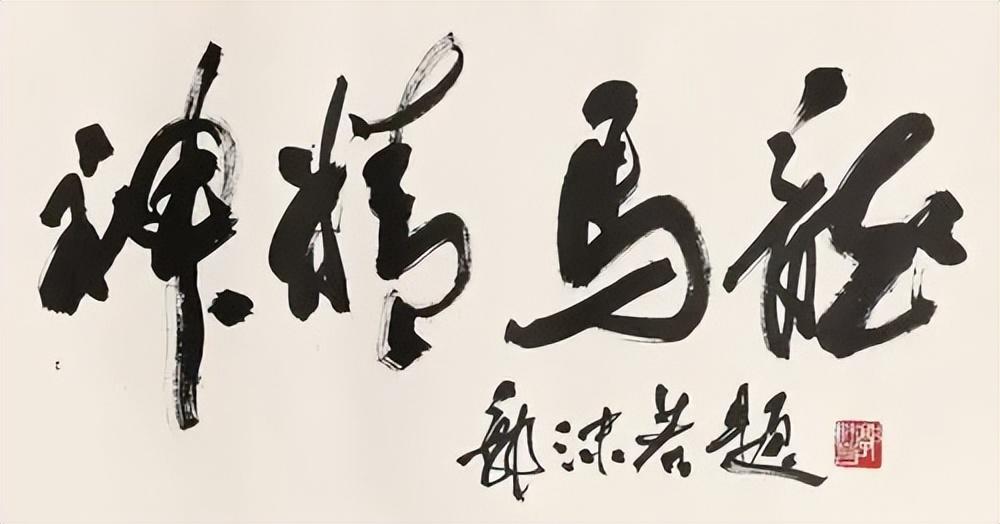 龍馬精神
郭沫若題